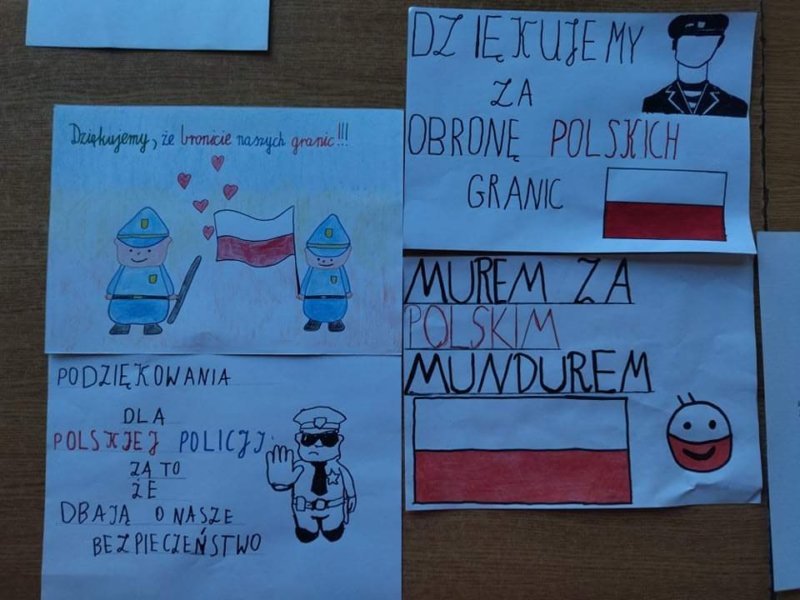 Dziękujemy, że bronicie naszych granic!!!
DZIĘKUJEMY
ZA
OBRONĘ POLSKICH
GRANIC
PODZIĘKOWANIA
DLA
POLSKIEJ POLICJI
ZA TO
ŻE
DBAJĄ O NASZE
BEZPIECZEŃSTWO
MUREM ZA
POLSKIM
MUNDUREM